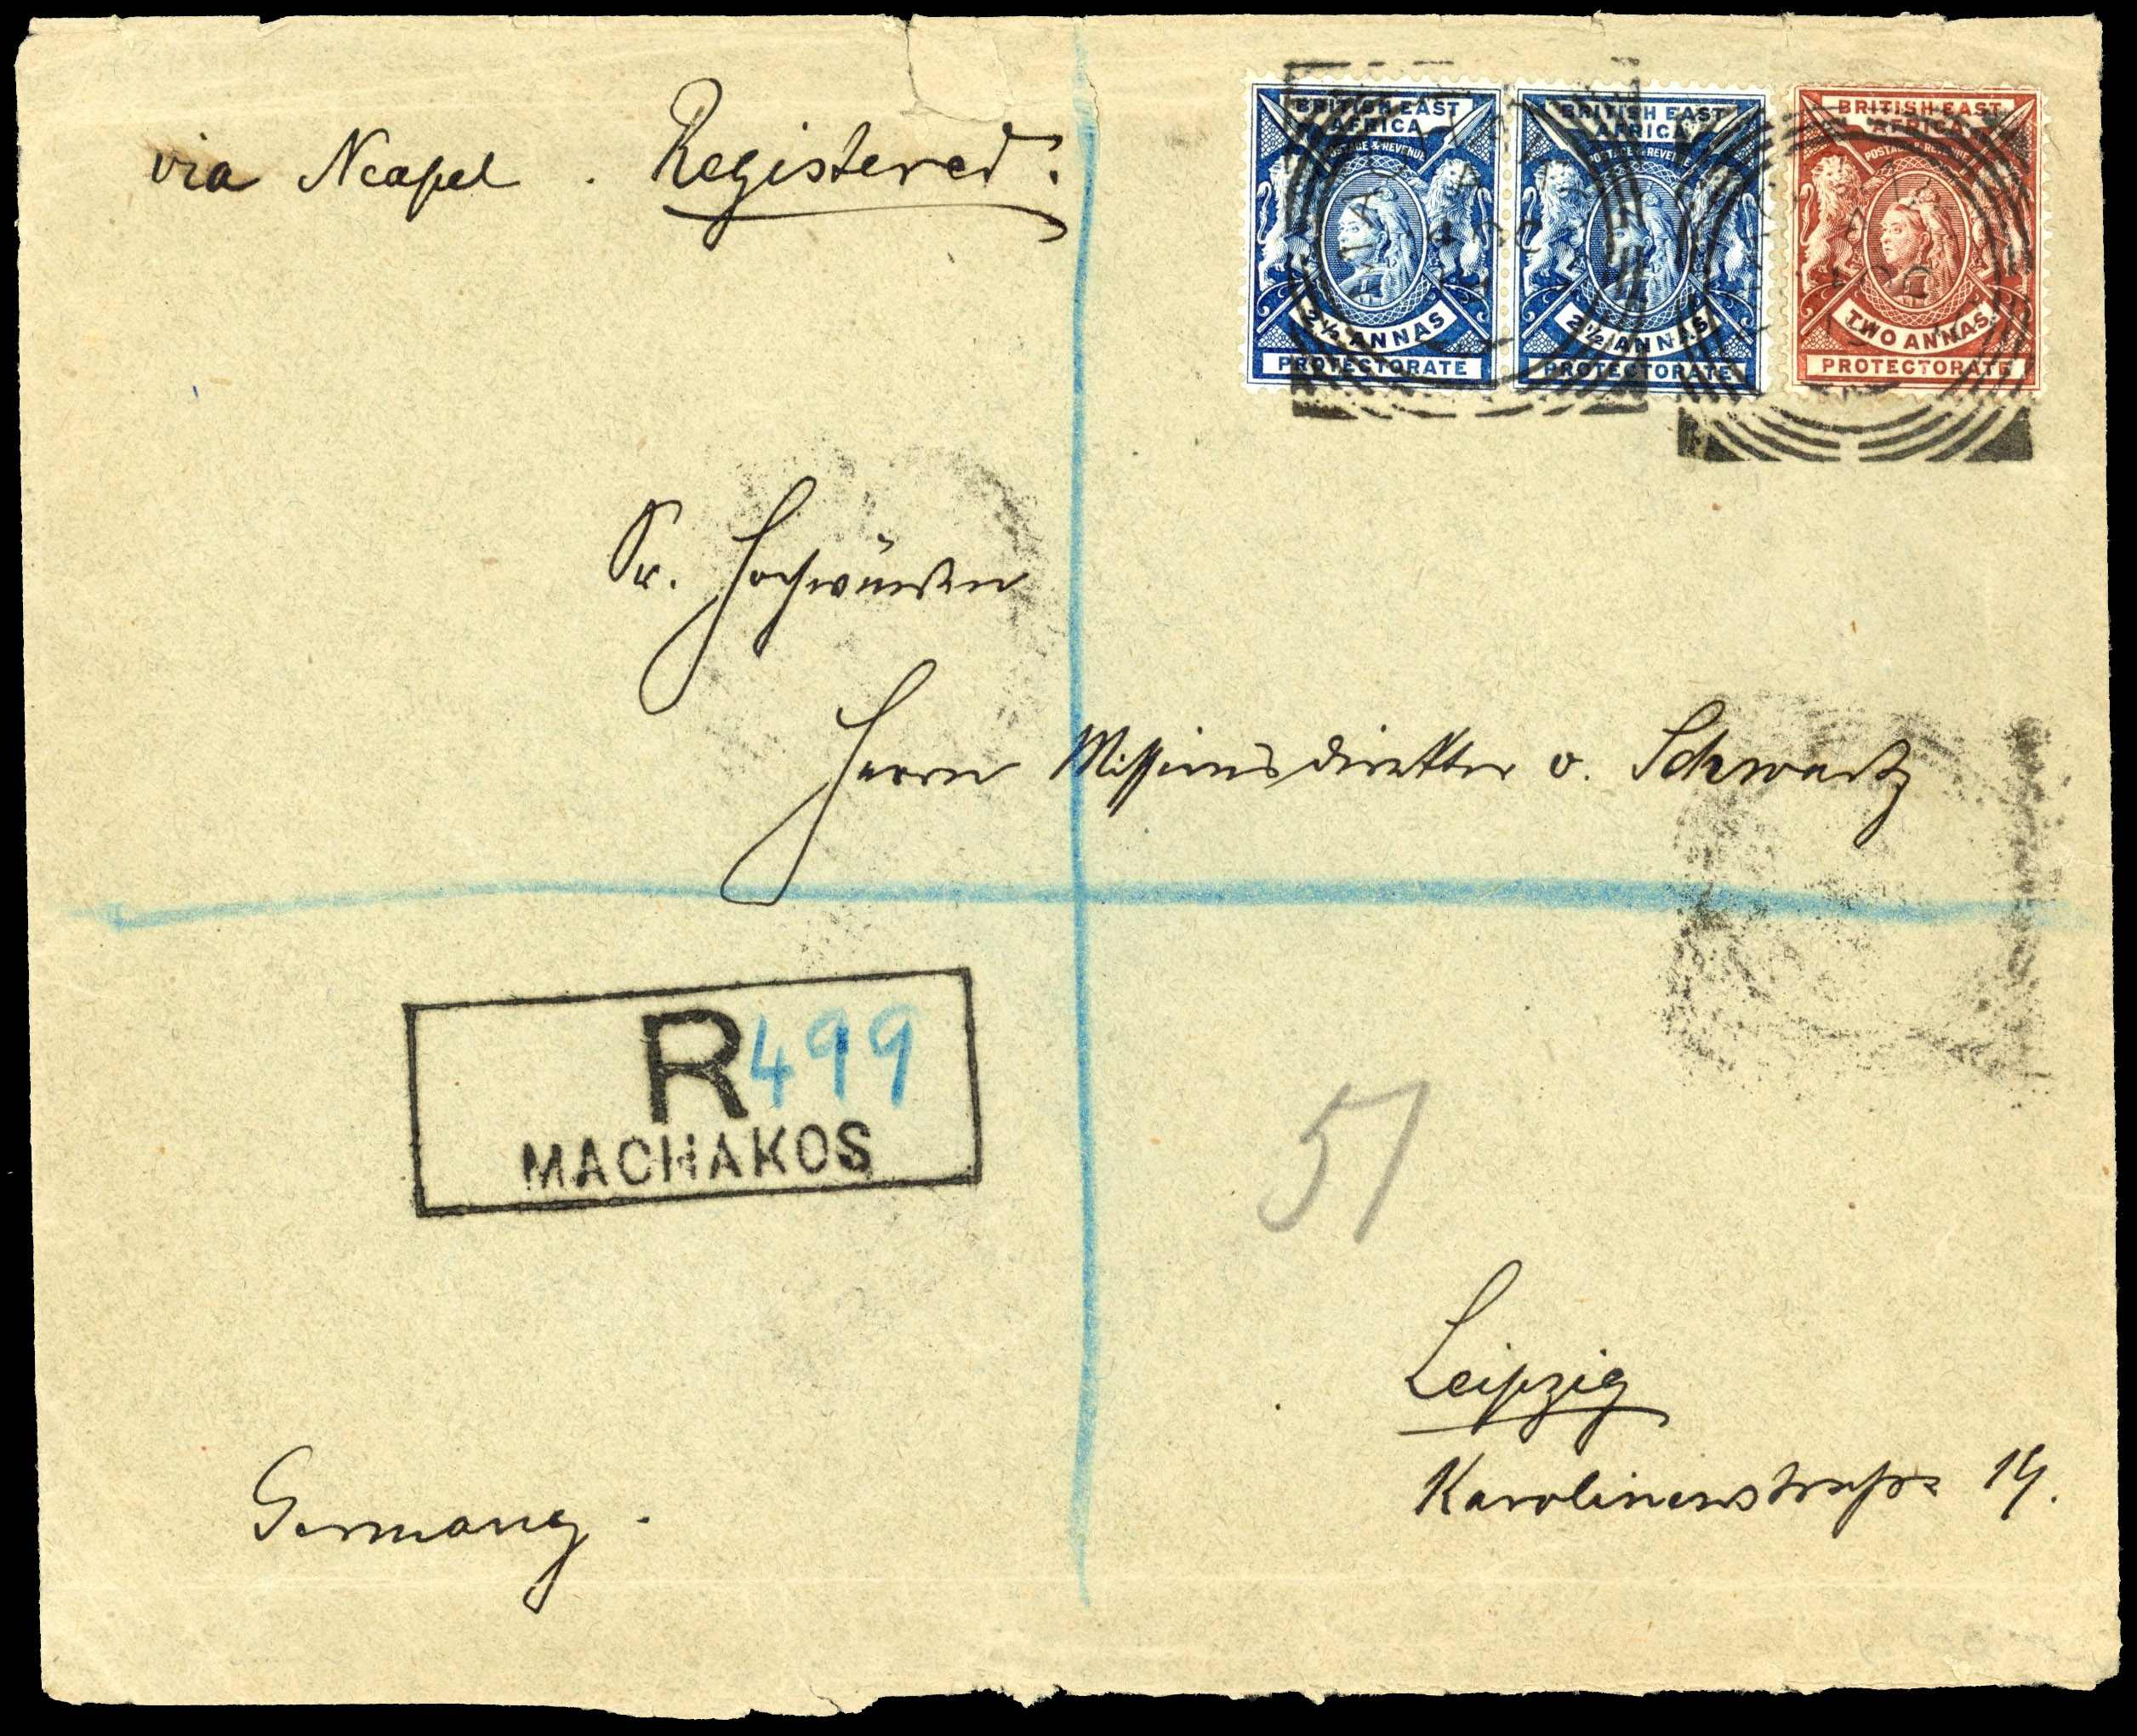 via Neapel. Registered.
BRITISH EAST
AFRICA
POSTAGE & REVENUE
2½ ANNAS
PROTECTORATE
BRITISH EAST
AFRICA
POSTAGE & REVENUE
2½ ANNAS
PROTECTORATE
BRITISH EAST
AFRICA
POSTAGE & REVENUE
TWO ANNAS
PROTECTORATE
Sr. Hochwürden
Herrn Missionsdirektor v. Schwartz
R 499
MACHAKOS
51
Leipzig
Karolinenstrasse 19.
Germany.